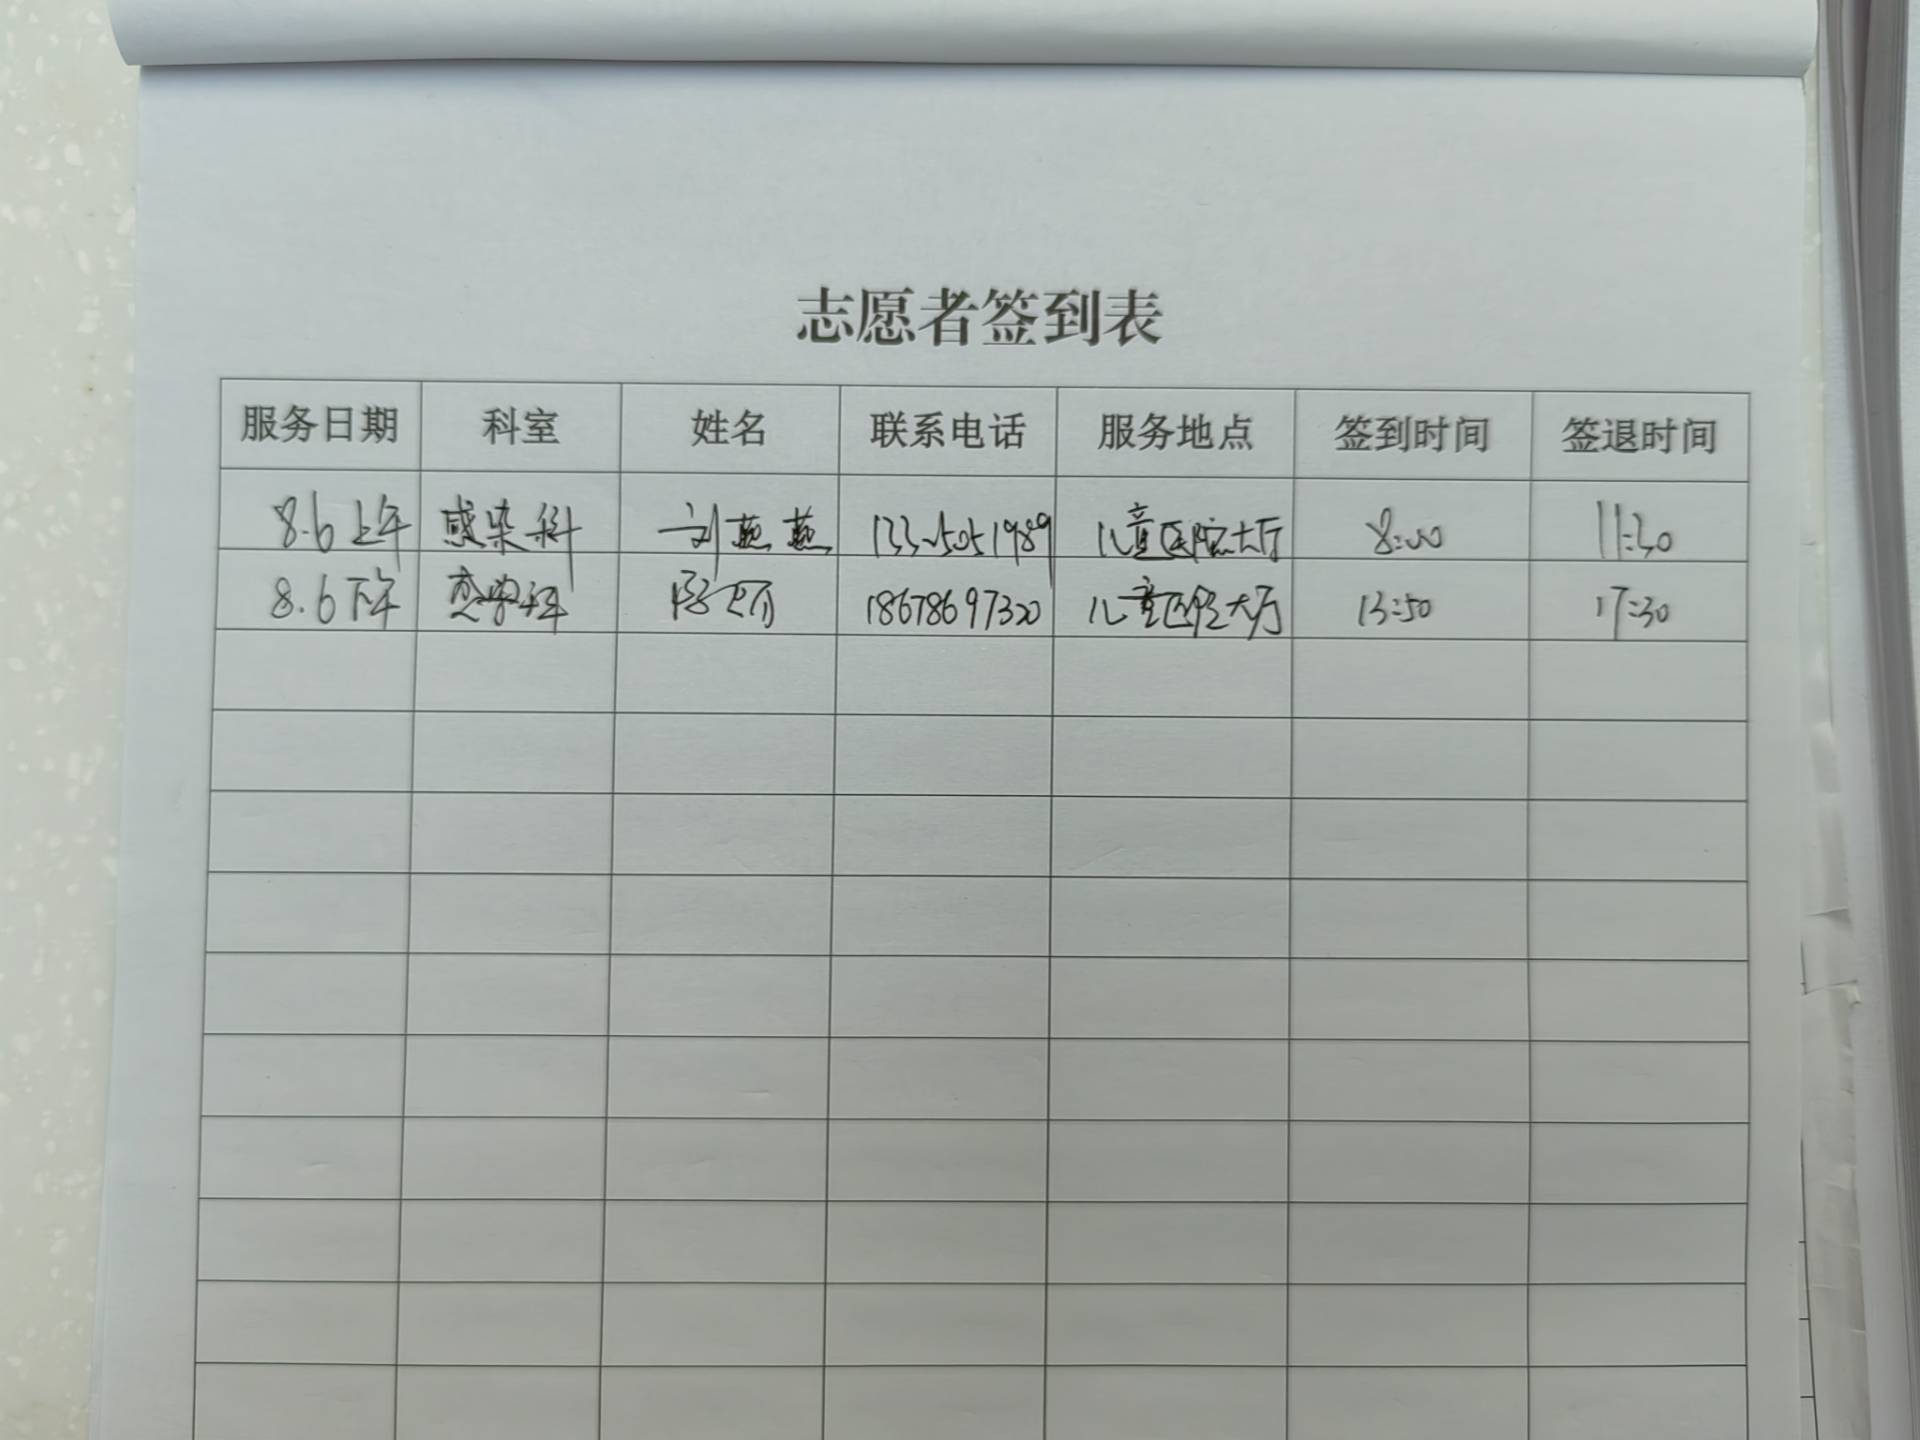 志愿者签到表
服务日期 科室 姓名 联系电话 服务地点 签到时间 签退时间
8.6上午 感染科 刘燕燕 13325051989 儿童医院大厅 8:00 11:30
8.6下午 18678697320 儿童医院大厅 13:50 17:30